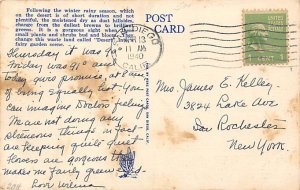 Following the winter rainy season, which
on the desert is of short duration and not
plentiful, the sunkissed sky at dull
change from the dullest breezes to brilliant
greens. It is a gorgeous sight when the
small plants and shrubs bud and bloom. They
change this waste land called "Desert" into
fairy garden scene.
POST
CARD
11 AM
1940
CALIF.
Thursday it was 90°
Friday was 91° and
today gives promise, at 8 am
of being equally hot. You
can imagine Doctors feeling
We are not doing any
strenuous things in fact
are keeping quite quiet
flowers are gorgeous this
makes me fairly
Love
Mrs. James E. Kelley,
2824 Lake Ave
Rochester
New York.